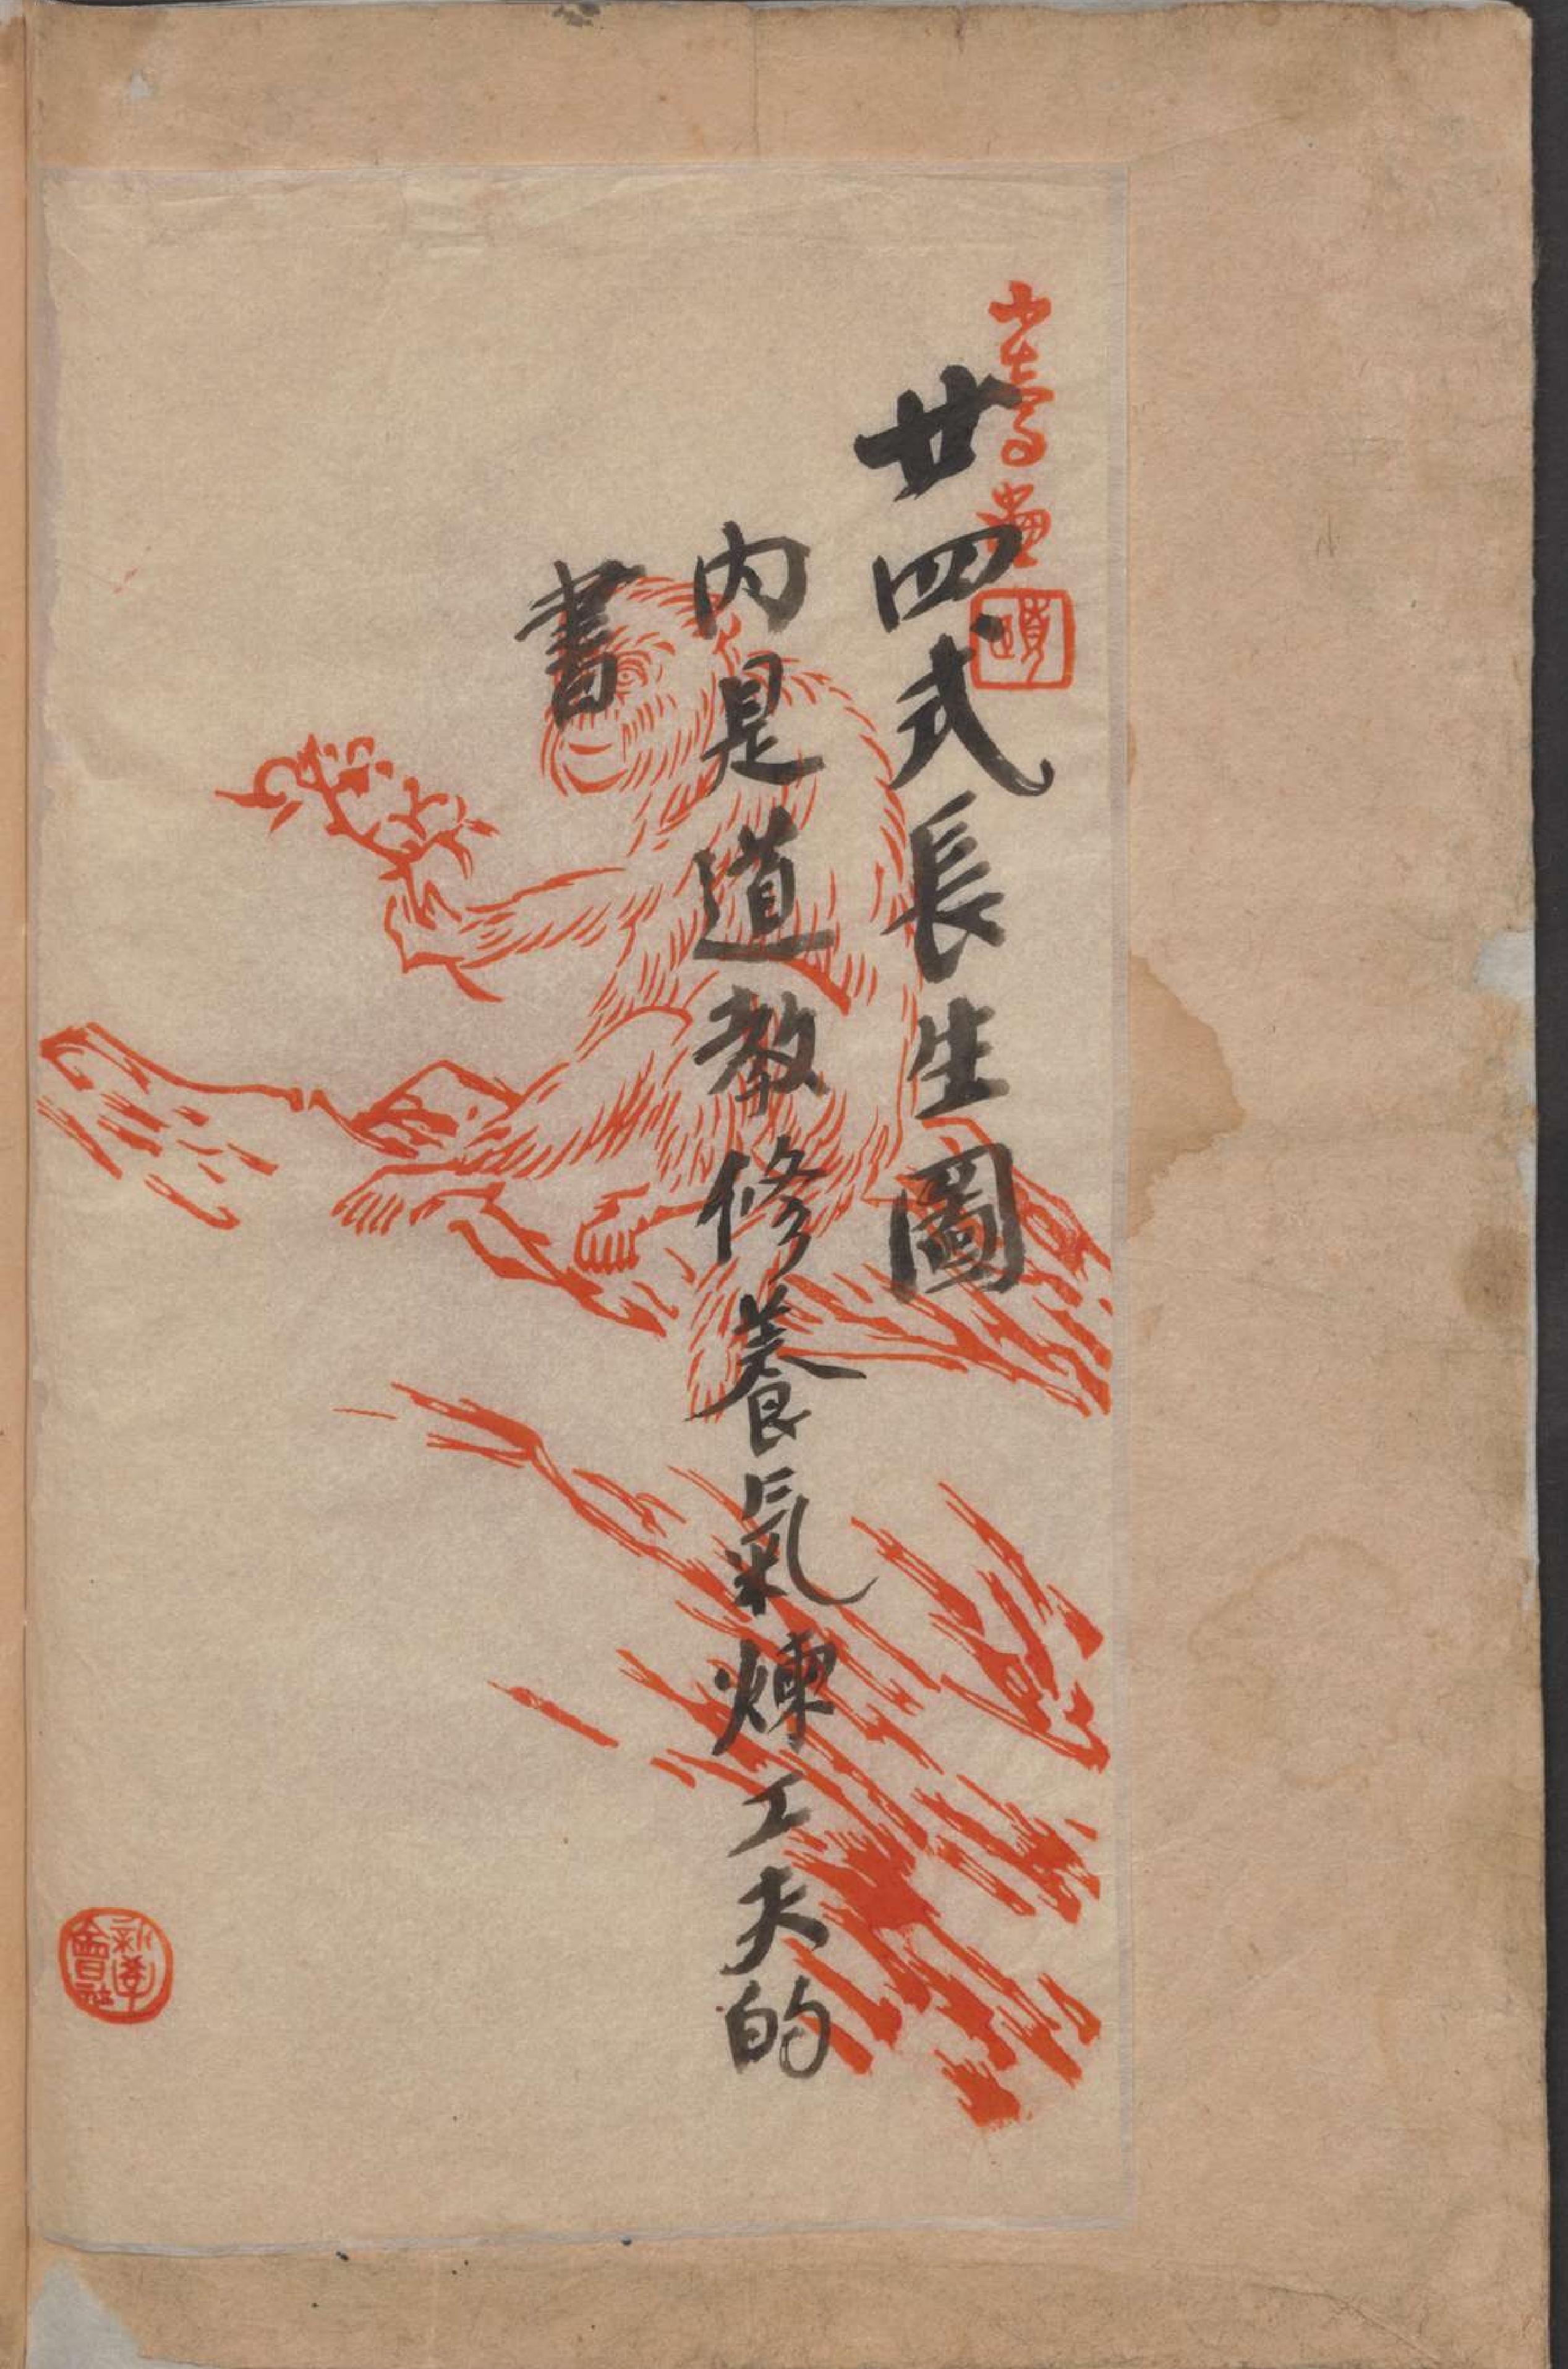 廿四式長生圖
内是道教修養氣煉工夫的
書